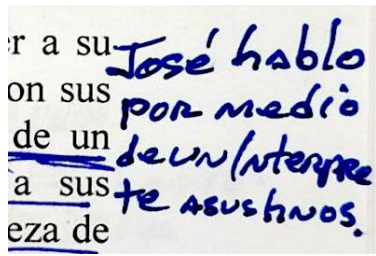 er a su
on sus
de un
a sus
eza de
José hablo
por medio
de un interpre
te a sus hnos.